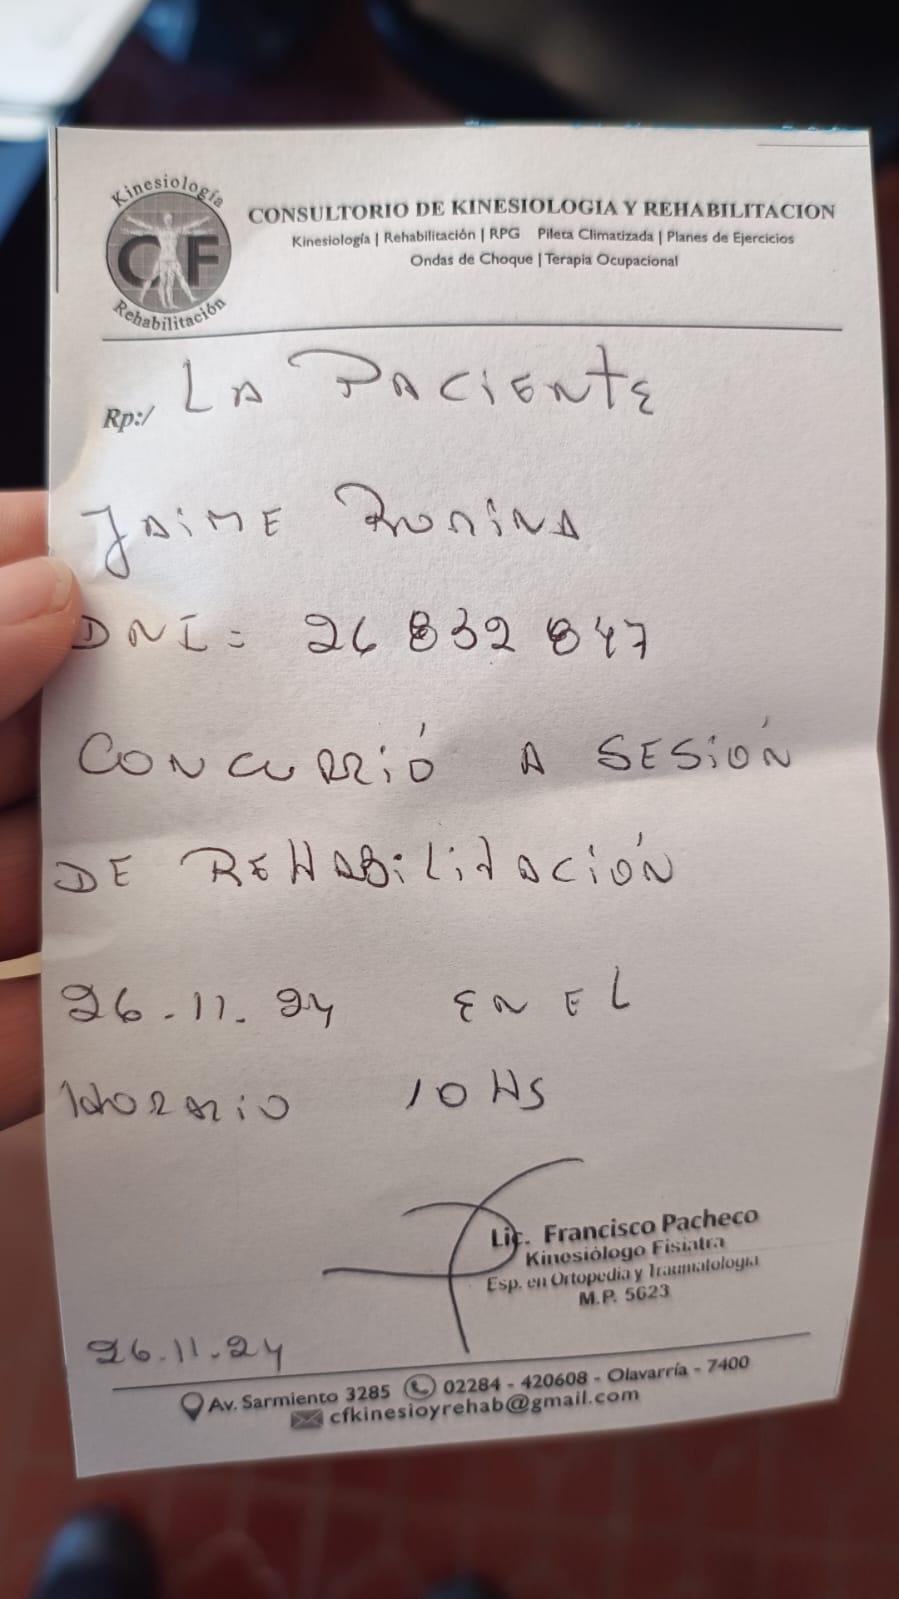 Kinesiología
CF
Rehabilitación
CONSULTORIO DE KINESIOLOGIA Y REHABILITACION
Kinesiología | Rehabilitación | RPG Pileta Climatizada | Planes de Ejercicios
Ondas de Choque | Terapia Ocupacional
Rp:/ LA PACIENTE
JAIME ROMINA
DNI = 26 832 847
CONCURRIÓ A SESIÓN
DE REHABILITACIÓN
26.11.24 EN EL
HORARIO 10 HS
Lic. Francisco Pacheco
Kinesiólogo Fisiatra
Esp. en Ortopedia y Traumatología
M.P. 5623
26.11.24
Av. Sarmiento 3285 02284 - 420608 - Olavarría - 7400
cfkinesioyrehab@gmail.com